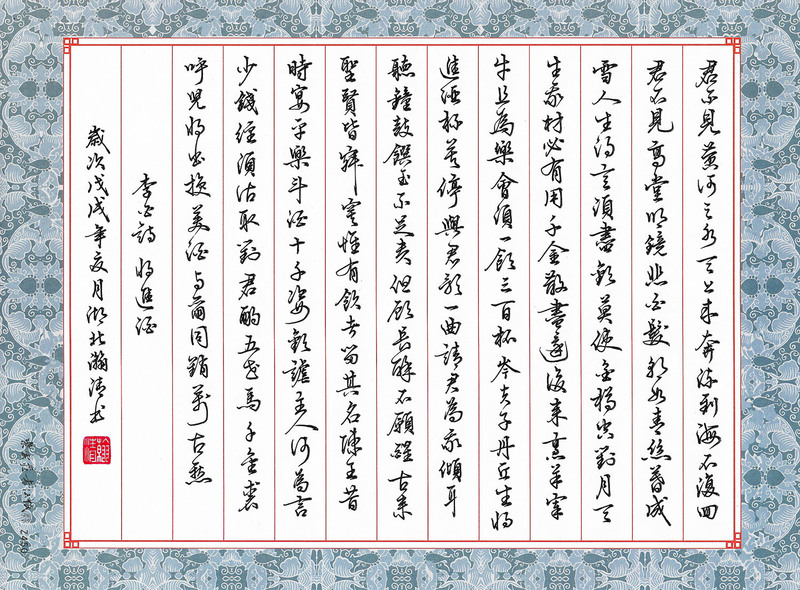 君不見黃河之水天上來奔流到海不復回
君不見高堂明鏡悲白髮朝如青絲暮成
雪人生得意須盡歡莫使金樽空對月天
生我材必有用千金散盡還復來烹羊宰
牛且為樂會須一飲三百杯岑夫子丹丘生將
進酒杯莫停與君歌一曲請君為我傾耳
聽鐘鼓饌玉不足貴但願長醉不願醒古來
聖賢皆寂寞惟有飲者留其名陳王昔
時宴平樂斗酒十千恣歡謔主人何為言
少錢徑須沽取對君酌五花馬千金裘
呼兒將出換美酒與爾同銷萬古愁
李白詩 將進酒
歲次戊戌年夏月湖北瀚清书